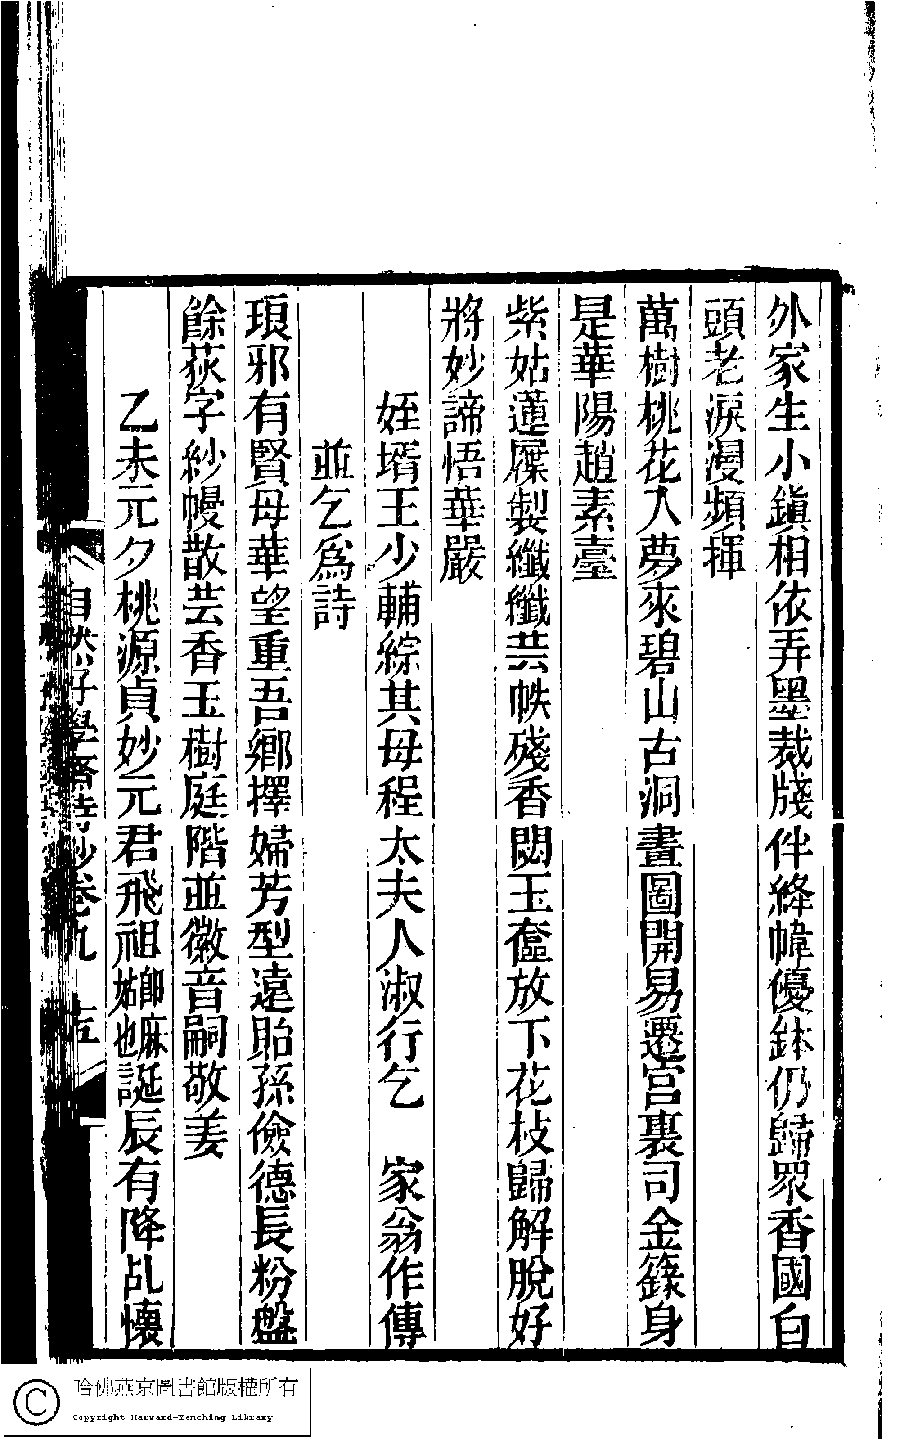 外家生小鎭相依弄墨裁牋伴絳幃優鉢仍歸眾香國白
頭老淚漫頻揮
萬樹桃花入夢來碧山古洞畫圖開易遷宮裏司金籙身
是華陽趙素臺
紫姑蓮屧製纖纖芸帙殘香閟玉奩放下花枝歸解脫好
將妙諦悟華嚴
姪壻王少輔綜其母程太夫人淑行乞 家翁作傳
並乞爲詩
琅邪有賢母華望重吾鄉擇婦芳型遠貽孫儉德長粉盤
餘荻字紗幔散芸香玉樹庭階並徽音嗣敬姜
乙未元夕桃源貞妙元君飛祖卽麻姑也誕辰有降乩懷
自然好學齋詩鈔卷九 十五
哈佛燕京圖書館版權所有
Copyright Harvard-Yenching Library